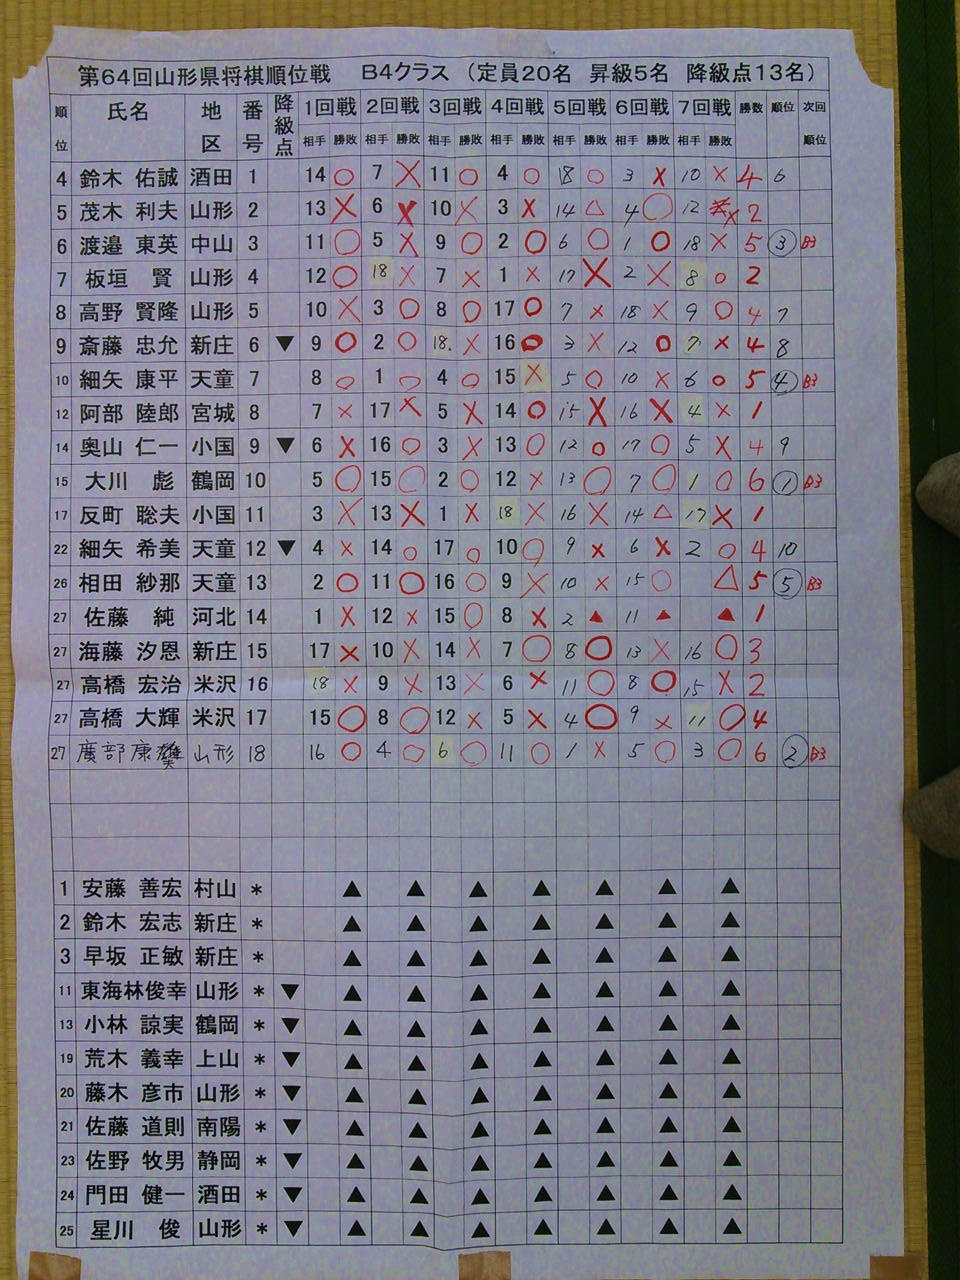 第64回山形県将棋順位戦　B4クラス　（定員20名　昇級5名　降級点13名）
順位 氏名 地区 番号 降級点 1回戦 2回戦 3回戦 4回戦 5回戦 6回戦 7回戦 勝数 順位 次回順位
相手 勝敗 相手 勝敗 相手 勝敗 相手 勝敗 相手 勝敗 相手 勝敗 相手 勝敗
4 鈴木 佑誠 酒田 1 14 ○ 7 × 11 ○ 4 ○ 18 ○ 3 × 10 × 4 6
5 茂木 利夫 山形 2 13 × 6 × 10 × 3 × 14 △ 4 ○ 12 × 2
6 渡邉 東英 中山 3 11 ○ 5 × 9 ○ 2 ○ 6 ○ 1 ○ 18 × 5 ③ B3
7 板垣 賢 山形 4 12 ○ 18 × 7 × 1 × 17 × 2 × 8 ○ 2
8 高野 賢隆 山形 5 10 × 3 ○ 8 ○ 17 ○ 7 × 18 × 9 ○ 4 7
9 斎藤 忠允 新庄 6 ▼ 9 ○ 2 ○ 18. × 16 ○ 3 × 12 ○ 7 × 4 8
10 細矢 康平 天童 7 8 ○ 1 ○ 4 ○ 15 × 5 ○ 10 × 6 ○ 5 ④ B3
12 阿部 陸郎 宮城 8 7 × 17 × 5 × 14 ○ 15 × 16 × 4 × 1
14 奥山 仁一 小国 9 ▼ 6 × 16 ○ 3 × 13 ○ 12 ○ 17 ○ 5 × 4 9
15 大川 彪 鶴岡 10 5 ○ 15 ○ 2 ○ 12 × 13 ○ 7 ○ 1 ○ 6 ① B3
17 反町 聡夫 小国 11 3 × 13 × 1 × 18 × 16 × 14 △ 17 × 1
22 細矢 希美 天童 12 ▼ 4 × 14 ○ 17 ○ 10 ○ 9 × 6 × 2 ○ 4 10
26 相田 紗那 天童 13 2 ○ 11 ○ 16 ○ 9 × 10 × 15 ○ △ 5 ⑤ B3
27 佐藤 純 河北 14 1 × 12 × 15 ○ 8 × 2 ▲ 11 ▲ ▲ 1
27 海藤 汐恩 新庄 15 17 × 10 × 14 × 7 ○ 8 ○ 13 × 16 ○ 3
27 高橋 宏治 米沢 16 18 × 9 × 13 × 6 × 11 ○ 8 ○ 15 × 2
27 高橋 大輝 米沢 17 15 ○ 8 ○ 12 × 5 × 4 ○ 9 × 11 ○ 4
27 廣部 康雄 山形 18 16 ○ 4 ○ 6 ○ 11 ○ 1 × 5 ○ 3 ○ 6 ② B3
1 安藤 善宏 村山 * ▲ ▲ ▲ ▲ ▲ ▲ ▲
2 鈴木 宏志 新庄 * ▲ ▲ ▲ ▲ ▲ ▲ ▲
3 早坂 正敏 新庄 * ▲ ▲ ▲ ▲ ▲ ▲ ▲
11 東海林俊幸 山形 * ▼ ▲ ▲ ▲ ▲ ▲ ▲ ▲
13 小林 諒実 鶴岡 * ▼ ▲ ▲ ▲ ▲ ▲ ▲ ▲
19 荒木 義幸 上山 * ▼ ▲ ▲ ▲ ▲ ▲ ▲ ▲
20 藤木 彦市 山形 * ▼ ▲ ▲ ▲ ▲ ▲ ▲ ▲
21 佐藤 道則 南陽 * ▼ ▲ ▲ ▲ ▲ ▲ ▲ ▲
23 佐野 牧男 静岡 * ▼ ▲ ▲ ▲ ▲ ▲ ▲ ▲
24 門田 健一 酒田 * ▼ ▲ ▲ ▲ ▲ ▲ ▲ ▲
25 星川 俊 山形 * ▼ ▲ ▲ ▲ ▲ ▲ ▲ ▲